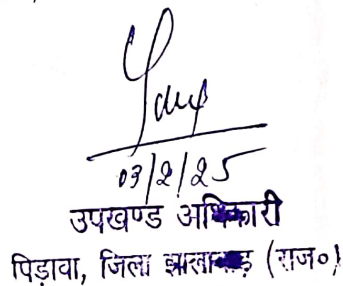 03/2/25
उपखण्ड अधिकारी
पिड़ावा, जिला झालावाड़ (राज०)